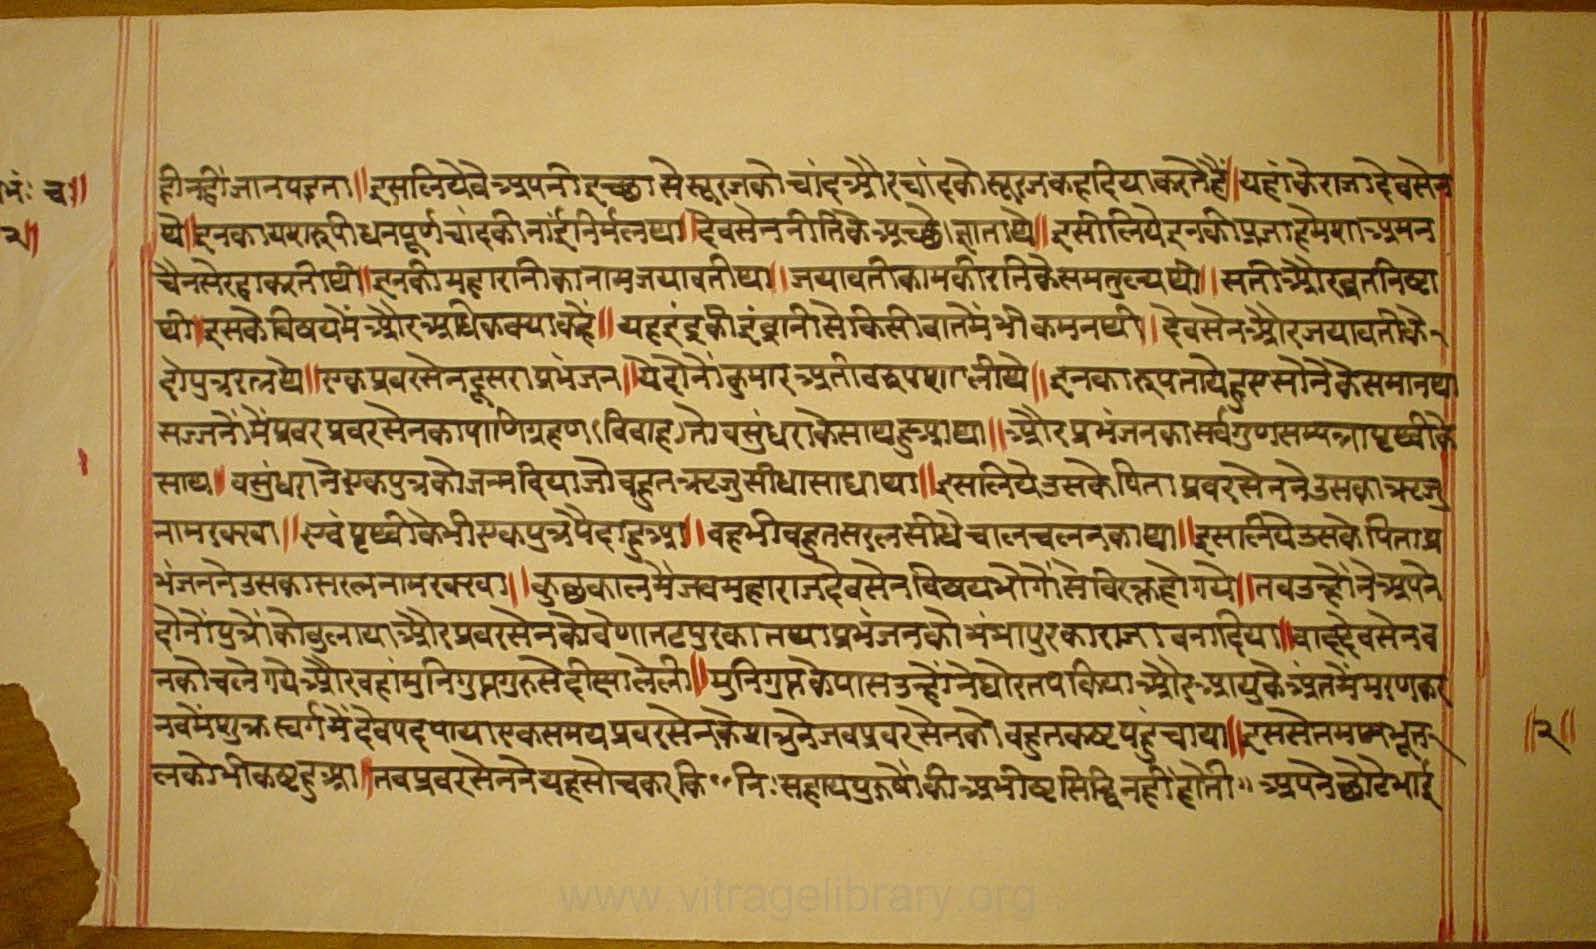 भं: च॥
२॥
हीनहीं जानपडना॥ इसलिये वे अपनी इच्छा से सूरजको चांद और चांदको सूरज कहदिया करते हैं॥ यहां के राजा देवसेन
थे॥ इनका यशरुपी धन पूर्ण चांदकी नांई निर्मलथा॥ देवसेन नीतिके अच्छे ज्ञाता थे॥ इसीलिये इनकी प्रजा हमेशा अमन
चैनसे रहाकरती थी॥ इनकी महारानी का नाम जयावती था॥ जयावती कामकी रति के समतुल्य थी॥ सती और व्रतनिष्टा
थी॥ इसके विषयमें और अधिक क्या कहें॥ यह इंद्रकी इंद्रानी से किसी बातमें भी कम न थी॥ देवसेन और जयावती के
दो पुत्ररत्न थे॥ एक प्रवरसेन दूसरा प्रभंजन॥ ये दोनों कुमार अतीव रुपशाली थे॥ इनका रुप तायेहुए सोने के समान था
सज्जनों में प्रवर प्रवरसेनका पाणिग्रहण (विवाह) तो वसुंधरा के साथ हुआ था॥ और प्रभंजनका सर्वगुणसम्पन्ना पृथ्वी के
साथ॥ वसुंधरा ने एक पुत्रको जन्म दिया जो बहुत ऋजु सीधा साधा था॥ इसलिये उसके पिता प्रवरसेनने उसका ऋजु
नाम रक्खा॥ एवं पृथ्वी के भी एक पुत्र पैदा हुआ॥ वह भी बहुत सरल सीधे चालचलन का था॥ इसलिये उसके पिता प्र
भंजनने उसका सरल नाम रक्खा॥ कुछकालमें जब महाराज देवसेन विषयभोगों से विरक्त होगये॥ तब उन्होंने अपने
दोनों पुत्रों को बुलाया और प्रवरसेनको वेणातटपुरका तथा प्रभंजनको भंभापुरका राजा बनादिया॥ बाद देवसेन ब
नको चले गये और वहां मुनिगुप्त गुरुसे दीक्षा लेली॥ मुनिगुप्तके पास उन्होंने घोर तप किया और आयुके अंतमें मरणकर
नवमें शुक्र स्वर्गमें देवपद पाया एकसमय प्रवरसेनके शत्रुने जब प्रवरसेनको बहुत कष्ट पंहुचाया॥ इससे तमाम भूत
लको भी कष्ट हुआ॥ तब प्रवरसेनने यह सोचकर कि “नि:सहाय पुरुषों की अभीष्ट सिद्धि नहीं होती” अपने छोटे भाई
॥२॥
www.vitragelibrary.org